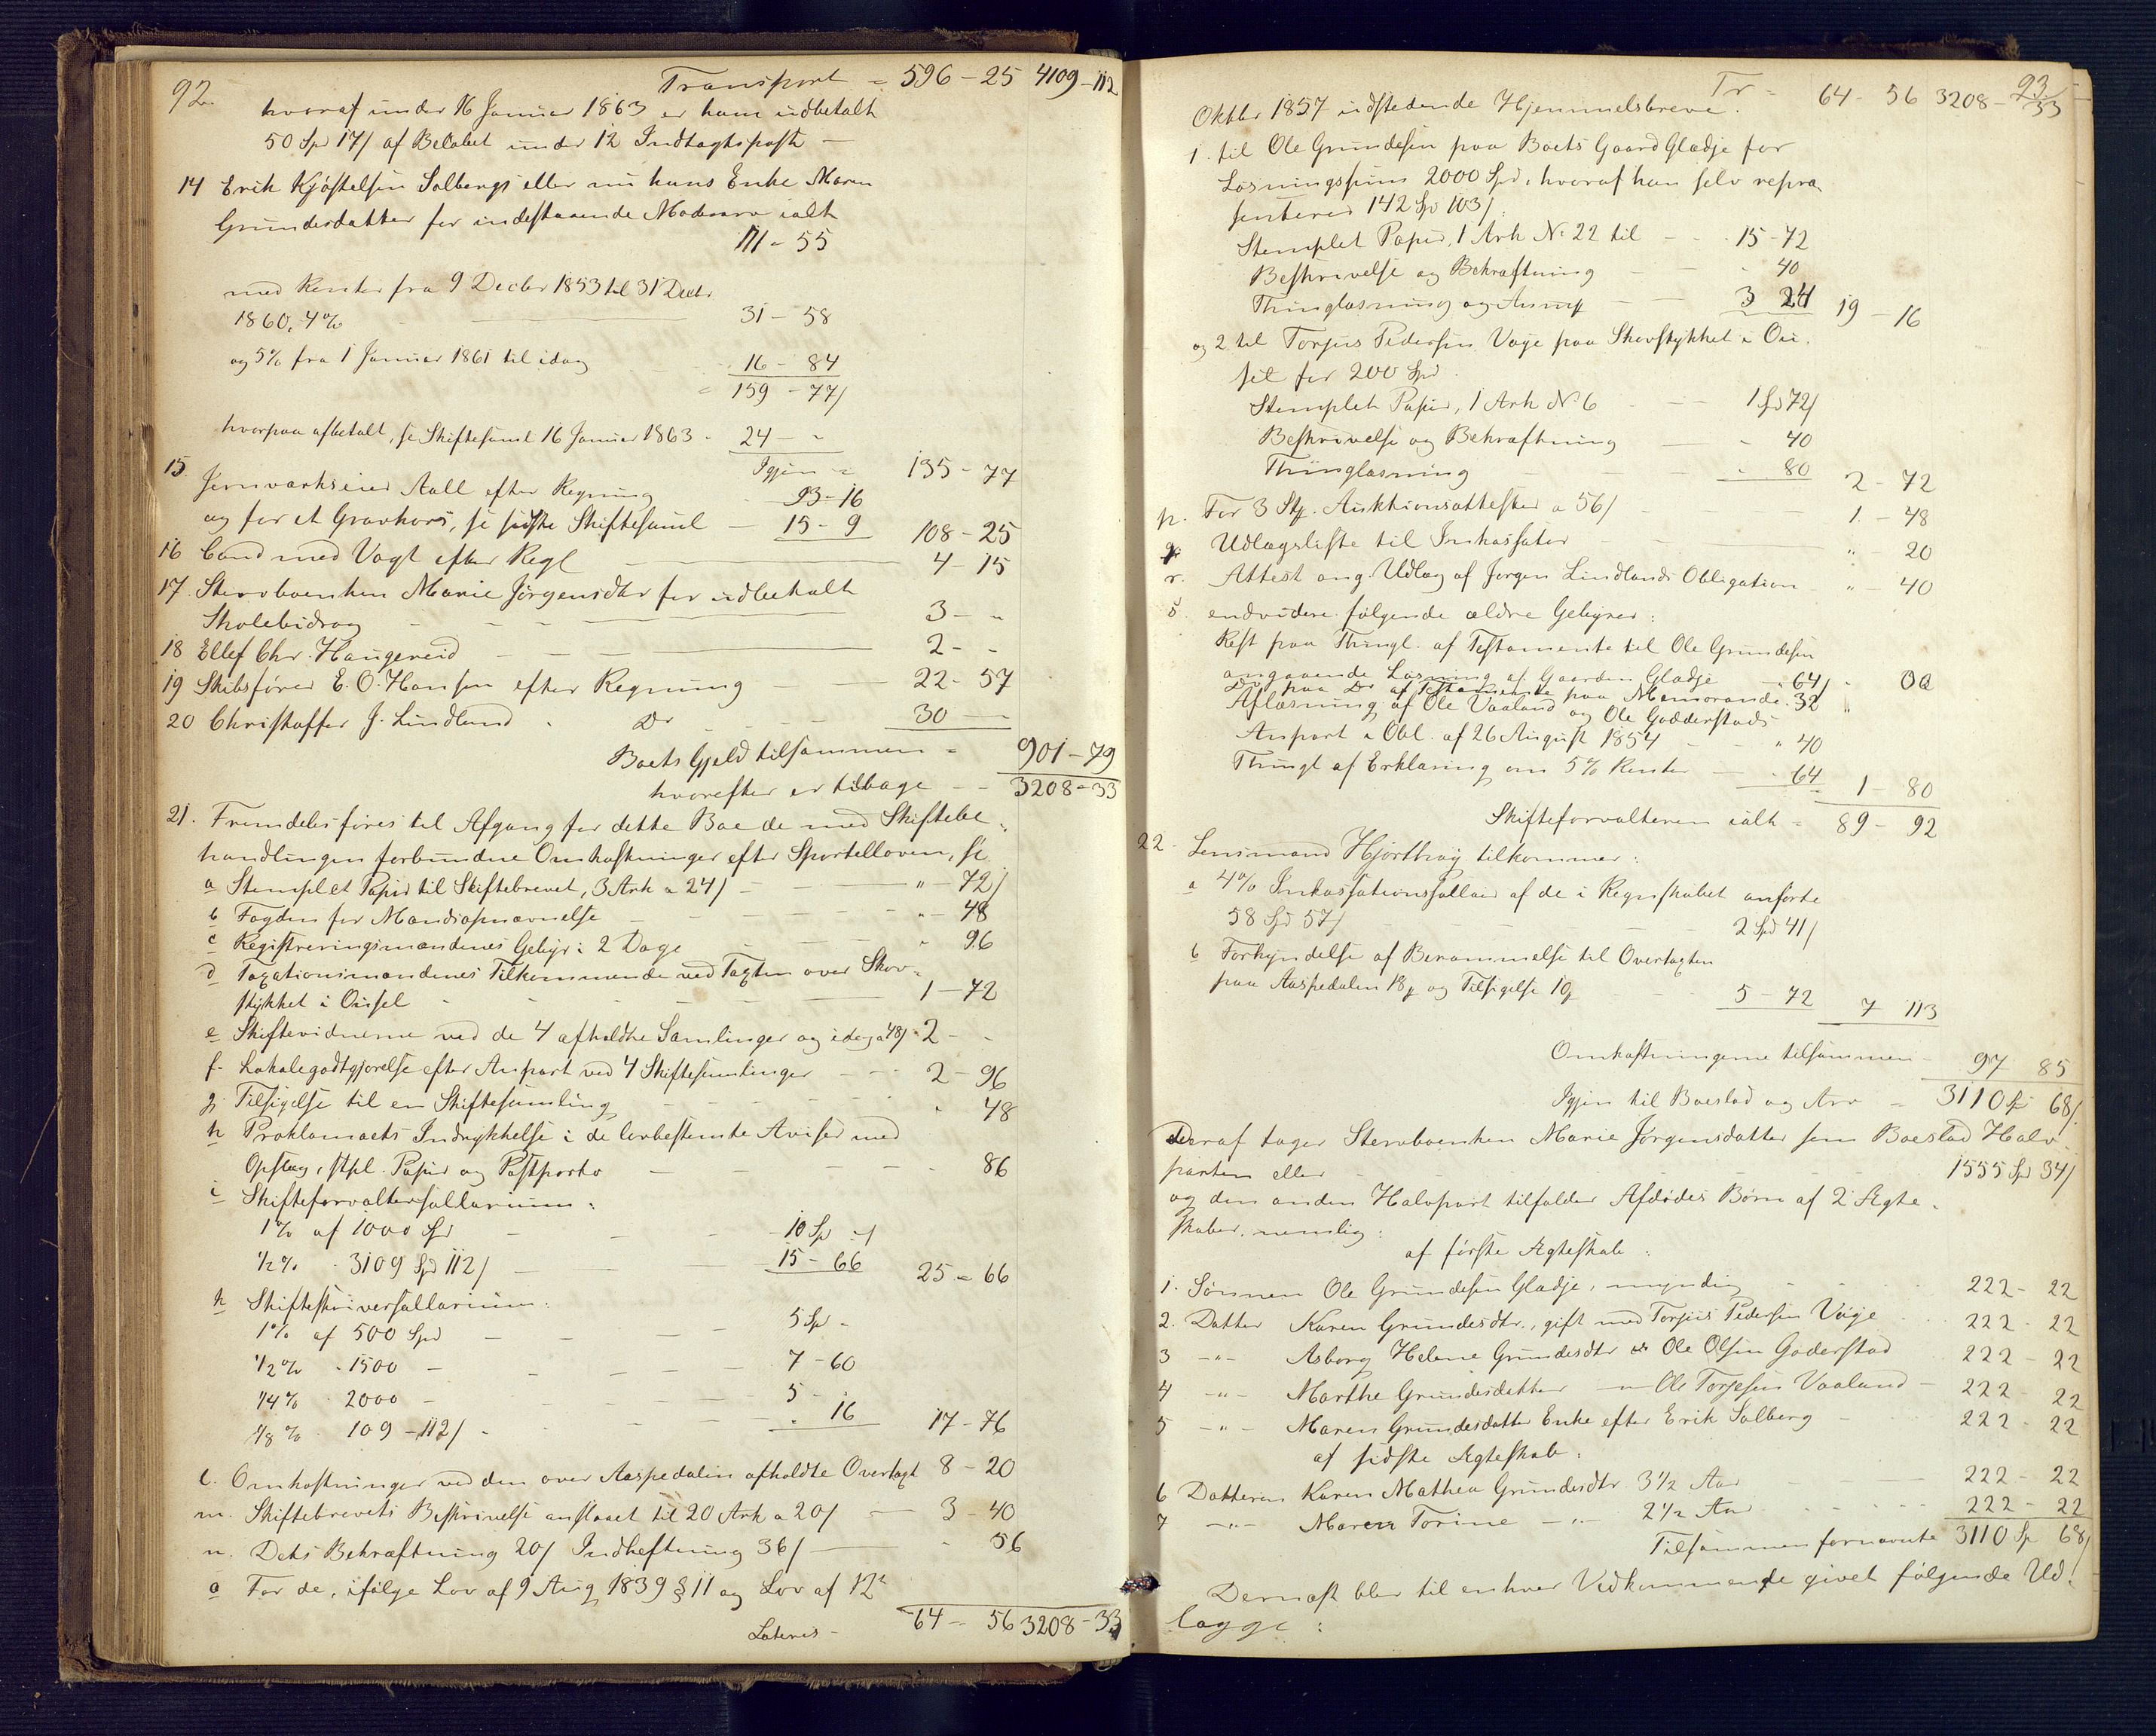 92.
Transport = 596 - 25 4109 - 112
hvoraf under 16 Januar 1863 er ham udbetalt
50 Spd 17/ af Beløbet under 12 Indtægtspost -
14 Erik Kjøstelsen Solbergs eller nu hans Enke Maren
Grundesdatter for indestaaende Modrearv ialt
111 - 55
med Renter fra 9 Decbr 1853 til 31 Decbr
1860, 4% 31 - 58
og 5% fra 1 Januar 1861 til idag 16 - 84
= 159 - 77/
hvorpaa afbetalt, se Skiftesaml 16 Januar 1863 - 24 - "
Igjen = 135 - 77
15. Jernværkseier Aall efter Regning 93 - 16
og for et Gravkors, se sidste Skiftesaml - 15 - 9 108 - 25
16 Cand med Vogt efter Regl 4 - 15
17. Stervboenken Marie Jørgensdtr for udbetalt
Skolebidrag 3 - "
18 Ellef Chr. Haugereid 2 - -
19 Skibsfører E. O. Hansen efter Regning 22 - 57
20 Christoffer J. Lindland Do 30 -
Boets Gjeld tilsammen = 901 - 79
hvorefter er tilbage - 3208 - 33
21. Fremdeles føres til Afgang for dette Bo de med Skiftebe-
handlingen forbundne Omkostninger efter Sportelloven, se
a Stemplet Papir til Skiftebrevet, 3 Ark a 24/ " - 72/
b Fogden for Mandsopnævnelse " - 48
c Registreringsmændenes Gebyr i 2 Dage " 96
d Taxationsmændenes Tilkommende ved Taxten over Skov-
stykket i Ousel 1 - 72
e Skiftevidnerne ved de 4 afholdte Samlinger og idag a 48/ 2 - "
f. Lokalegodtgjørelse efter Anpart ved 4 Skiftesamlinger 2 - 96
g. Tilsigelse til en Skiftesamling " 48
h Proklamaets Indrykkelse i de lovbestemte Aviser med
Opslag, stpl. Papir og Postporto - 86
i Skifteforvaltersallarium:
1% af 1000 Spd 10 Sp "/
1/2% - 3109 Spd 112/ 15 - 66 25 - 66
k Skifteskriversallarium:
1% af 500 Spd 5 Spd -
1/2% - 1500 - 7 - 60
1/4% - 2000 - 5 -
1/8% - 109 - 112/ " 16 17 - 76
l. Omkostninger ved den over Aaspedalen afholdte Overtaxt 8 - 20
m. Skiftebrevets Beskrivelse anslaaet til 20 Ark a 20/ 3 - 40
n. Dets Bekræftning 20/ Indheftning 36/ - 56
o For de, ifølge Lov af 9 Aug 1839 § 11 og Lov af 12te
Lateris - 64 - 56 3208 - 33
93
Tr - 64 - 56 3208 - 33
Oktbr 1857 udstedende Hjemmelsbreve:
1. til Ole Grundesen paa Boets Gaard Gladje for
Løsningssum 2000 Spd, hvoraf han selv repræ-
senterer 142 Spd 103/:
Stemplet Papir, 1 Ark No 22 til 15 - 72
Beskrivelse og Bekræftning " 40
Thinglæsning og Anmf 3 24 19 - 16
og 2. til Torjus Pedersen Vaje paa Skovstykket i Ou-
sel for 200 Spd.
Stemplet Papir, 1 Ark No 6 1 Spd 72/
Beskrivelse og Bekræftning " 40
Thinglæsning " 80 2 - 72
p. For 3 Stk. Auktionsattester a 56/ 1 - 48
q Udlægsliste til Inkassator " 20
r. Attest ang. Udlæg af Jørgen Lindlands Obligation " - 40
s endvidere følgende ældre Gebyrer:
Rest paa Thingl. af Testamente til Ole Grundesen
angaaende Løsning af Gaarden Gladje - 64/
Do paa Do af Testamente paa Memorandi. 32
Aflæsning af Ole Vaaland og Ole Godderstads
Anpart i Obl. af 26 August 1854 " 40
Thingl af Erklæring om 5% Renter - 64 1 - 80
Skifteforvalteren ialt = 89 - 92
22. Lensmand Hjorthøy tilkommer:
a 4% Inkassationssallair af de i Regnskabet anførte
58 Spd 57/ 2 Spd 41/
b Forkyndelse af Berammelse til Overtaxten
paa Aaspedalen og Tilsigelse 5 - 72 7 113
Omkostningerne tilsammen - 97 85
Igjen til Boeslod og Arv = 3110 Sp 68/.
deraf tager Stervboenken Marie Jørgensdatter sem Boeslod Halv-
parten eller 1555 Spd 34/
og den anden Halvpart tilfalder Afdødes Børn af 2 Ægte-
skaber, nemlig:
af første Ægteskab:
1. Sønnen Ole Grundesen Gladje, myndig 222 - 22
2. Datter Karen Grundesdtr., gift med Torjus Pedersen Vaje 222 - 22
3 - " - Asborg Helene Grundesdtr " Ole Olsen Goderstad 222 - 22
4 - " - Marthe Grundesdatter - " Ole Torjesen Vaaland - 222 22
5 - " - Maren Grundesdatter Enke efter Erik Solberg - 222 - 22
af sidste Ægteskab:
6 Datteren Karen Mathea Grundesdtr. 3 1/2 Aar 222 - 22
7 - " - Maren Torine - " - 2 1/2 Aar 222 - 22
Tilsammen fornævnte 3110 Sp 68/
Dernæst blev til enhver Vedkommende givet følgende Ud-
lægge: